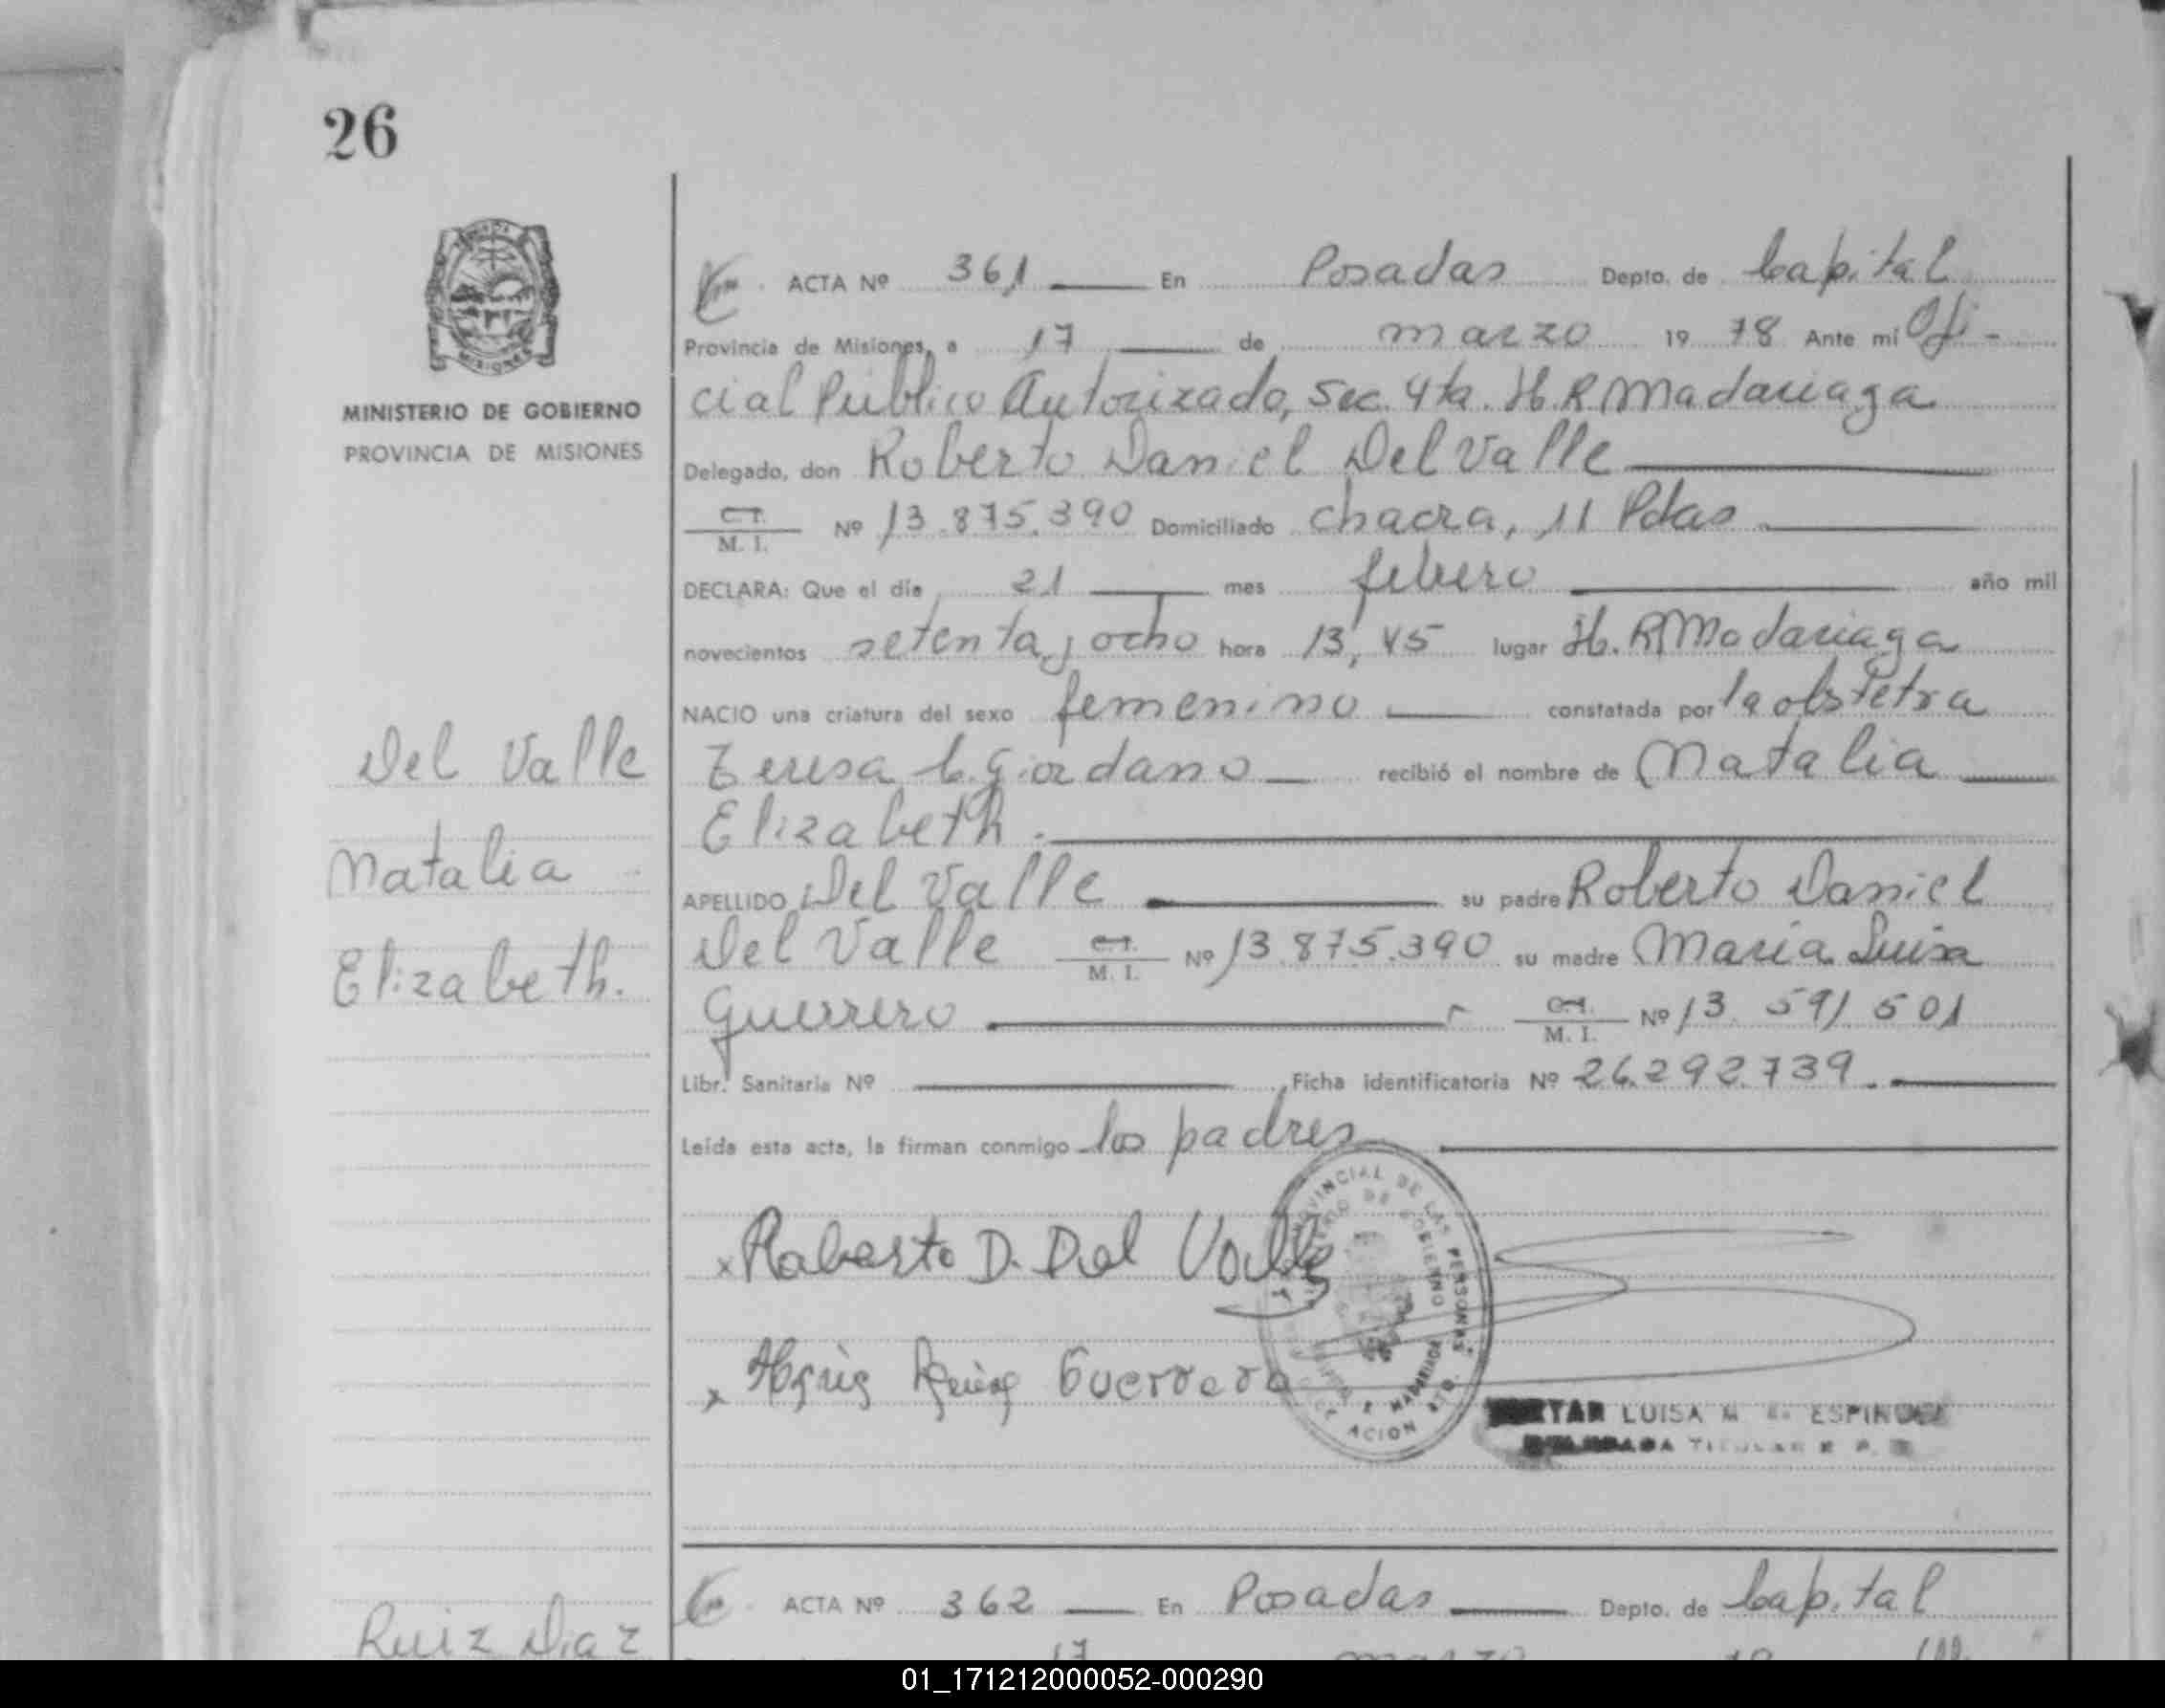 26
MINISTERIO DE GOBIERNO
PROVINCIA DE MISIONES
ACTA Nº 361 En Posadas Depto. de Capital
Provincia de Misiones, a 17 de marzo 19 78 Ante mi Ofi-
cial Público Autorizado, Sec. 4ta. H.R Madariaga
Delegado, don Roberto Daniel Del Valle
C.I. M. I. Nº 13.875.390 Domiciliado chacra, 11 Pdas
DECLARA: Que el día 21 mes febrero año mil
novecientos setenta y ocho hora 13,45 lugar H.R Madariaga
NACIO una criatura del sexo femenino constatada por la obstetra
Del Valle
Teresa C. Giordano recibió el nombre de Natalia
Elizabeth.
Natalia
APELLIDO Del Valle su padre Roberto Daniel
Elizabeth.
Del Valle C.I. M. I. Nº 13.875.390 su madre Maria Luisa
Guerrero C.I. M. I. Nº 13.591.501
Libr. Sanitaria Nº Ficha identificatoria Nº 26.292.739.
Leída esta acta, la firman conmigo los padres
x Roberto D. Del Valle
x Guerrero
PROVINCIAL DE LAS PERSONAS
DE GOBIERNO
LUISA ESPINOLA
TITULAR
ACTA Nº 362 En Posadas Depto. de Capital
Ruiz Diaz
17 marzo
01_171212000052-000290